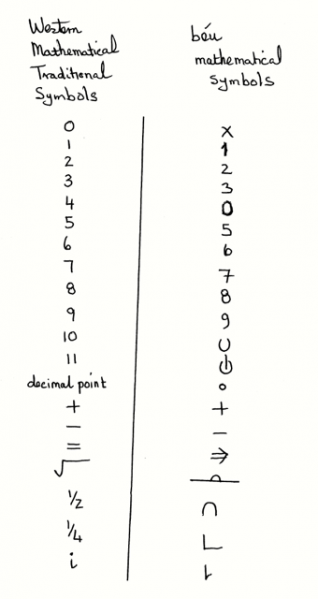 Western
Mathematical
Traditional
Symbols
béu
mathematical
symbols
0 x
1 1
2 2
3 3
4 0
5 5
6 6
7 7
8 8
9 9
10 ∪
11 ⏻
decimal point °
+ +
− −
= ⇒
√
1/2 ∩
1/4 ∟
i